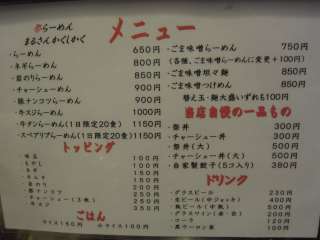 らーめん
まるさんかくしかく
メニュー
・らーめん 650円
・ネギらーめん 800円
・岩のりらーめん 850円
・チャーシューめん 900円
・豚ナンコツらーめん 900円
・キスジらーめん 950円
・牛タンらーめん(1日限定20食) 1150円
・スペアリブらーめん(1日限定20食) 1150円
トッピング
・味玉 100円
・もやし 100円
・ネギ 150円
・のり
・メンマ
・岩のり
・豚ナンコツ
・チャーシュー(3枚)
・キスジ
ごはん
ライス150円 小ライス100円
・ごま味噌らーめん 750円
(各種、ごま味噌らーめんに変更+100円)
・ごま味噌坦々麺 850円
・ごま味噌つけめん 850円
替え玉・麺大盛いずれも100円
当店自慢の一品もの
・豚丼 300円
・チャーシュー丼 300円
・豚丼(大) 500円
・チャーシュー丼(大) 500円
・自家製餃子(5つ入り) 380円
ドリンク
・グラスビール 230円
・生ビール(中ジョッキ) 400円
・瓶ビール(中瓶) 500円
・グラスワイン(赤・白) 200円
・コーラ 120円
・黒ウーロン茶 180円